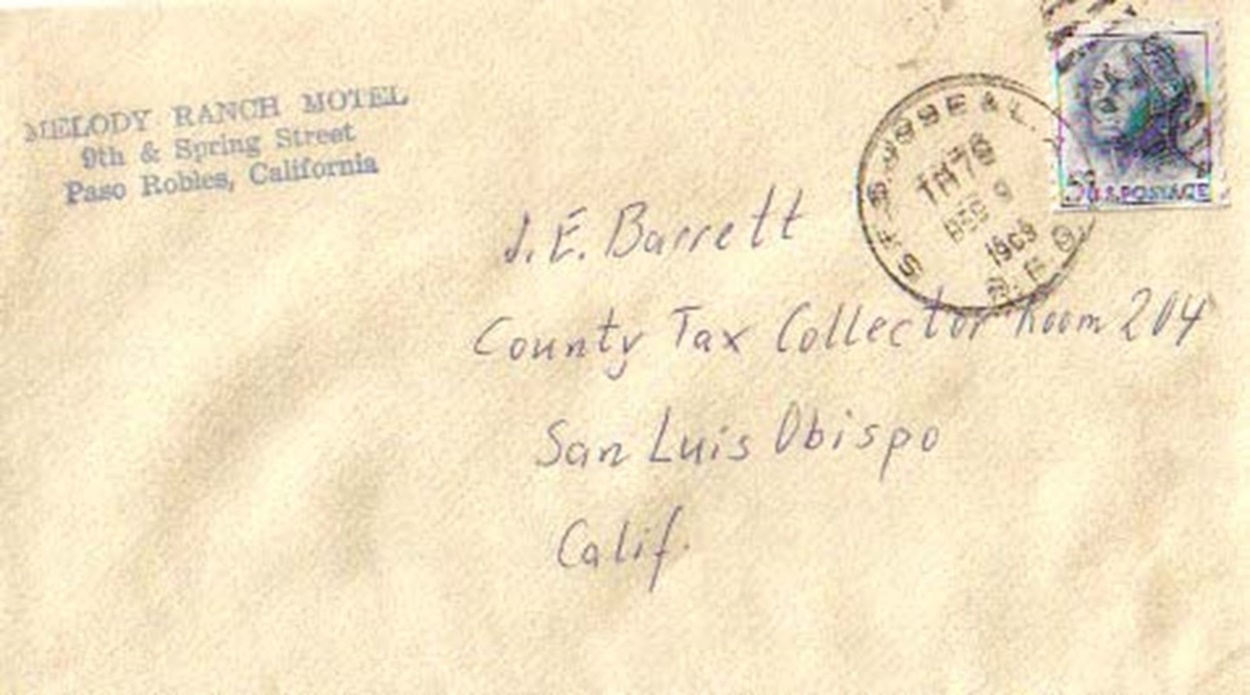 MELODY RANCH MOTEL
9th & Spring Street
Paso Robles, California
5¢ U.S. POSTAGE
TN 76
9
1969
R.P.O.
J. E. Barrett
County Tax Collector Room 204
San Luis Obispo
Calif.